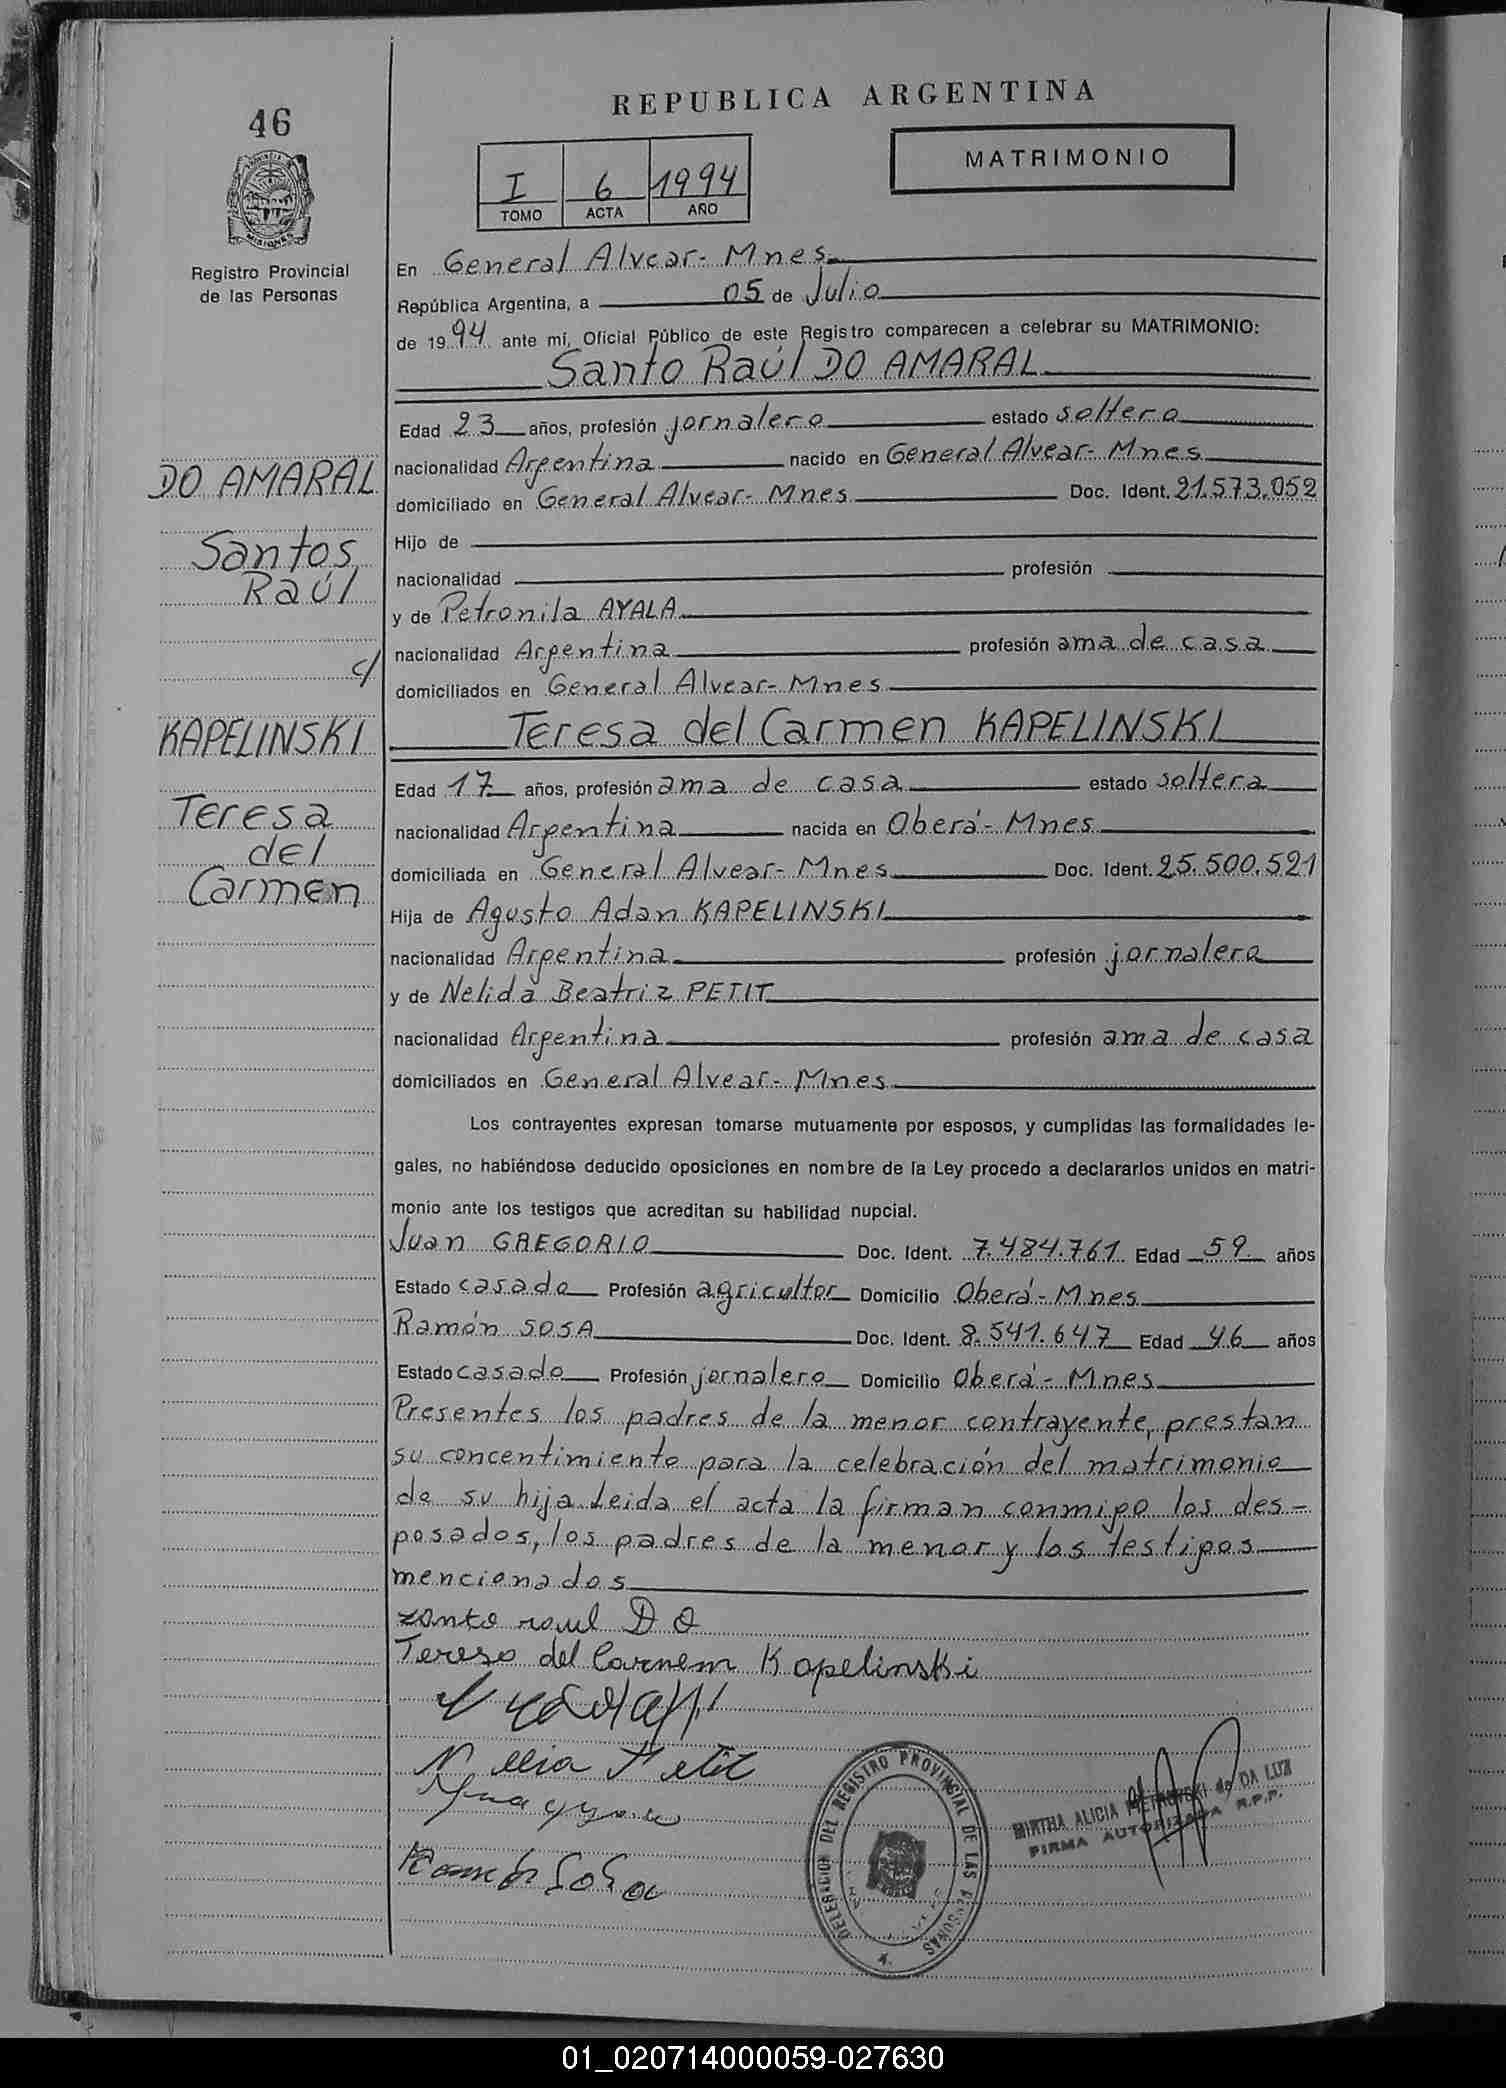 46
REPUBLICA ARGENTINA
MATRIMONIO
I 6 1994
TOMO ACTA AÑO
PROVINCIA
MISIONES
Registro Provincial
de las Personas
En General Alvear- Mnes
República Argentina, a 05 de Julio
de 1994 ante mí, Oficial Público de este Registro comparecen a celebrar su MATRIMONIO:
Santo Raúl DO AMARAL
Edad 23 años, profesión jornalero estado soltero
nacionalidad Argentina nacido en General Alvear- Mnes
domiciliado en General Alvear- Mnes Doc. Ident. 21.573.052
Hijo de
nacionalidad profesión
y de Petronila AYALA
nacionalidad Argentina profesión ama de casa
domiciliados en General Alvear- Mnes
DO AMARAL
Santos
Raúl
c/
KAPELINSKI
Teresa
del
Carmen
Teresa del Carmen KAPELINSKI
Edad 17 años, profesión ama de casa estado soltera
nacionalidad Argentina nacida en Oberá- Mnes
domiciliada en General Alvear- Mnes Doc. Ident. 25.500.521
Hija de Agusto Adan KAPELINSKI
nacionalidad Argentina profesión jornalero
y de Nelida Beatriz PETIT
nacionalidad Argentina profesión ama de casa
domiciliados en General Alvear- Mnes
Los contrayentes expresan tomarse mutuamente por esposos, y cumplidas las formalidades le-
gales, no habiéndose deducido oposiciones en nombre de la Ley procedo a declararlos unidos en matri-
monio ante los testigos que acreditan su habilidad nupcial.
Juan GREGORIO Doc. Ident. 7.484.761 Edad 59 años
Estado casado Profesión agricultor Domicilio Oberá- Mnes
Ramón SOSA Doc. Ident. 8.541.647 Edad 46 años
Estado casado Profesión jornalero Domicilio Oberá- Mnes
Presentes los padres de la menor contrayente, prestan
su concentimiento para la celebración del matrimonio
de su hija. Leida el acta la firman conmigo los des-
posados, los padres de la menor y los testigos
mencionados
zanto raul D O
Teresa del Carnem Kapelinski
Petit
Ramon Sosa
DELEGACION DEL REGISTRO PROVINCIAL DE LAS PERSONAS
MIRTHA ALICIA PIETROWSKI de DA LUZ
FIRMA AUTORIZADA R.P.P.
01_020714000059-027630